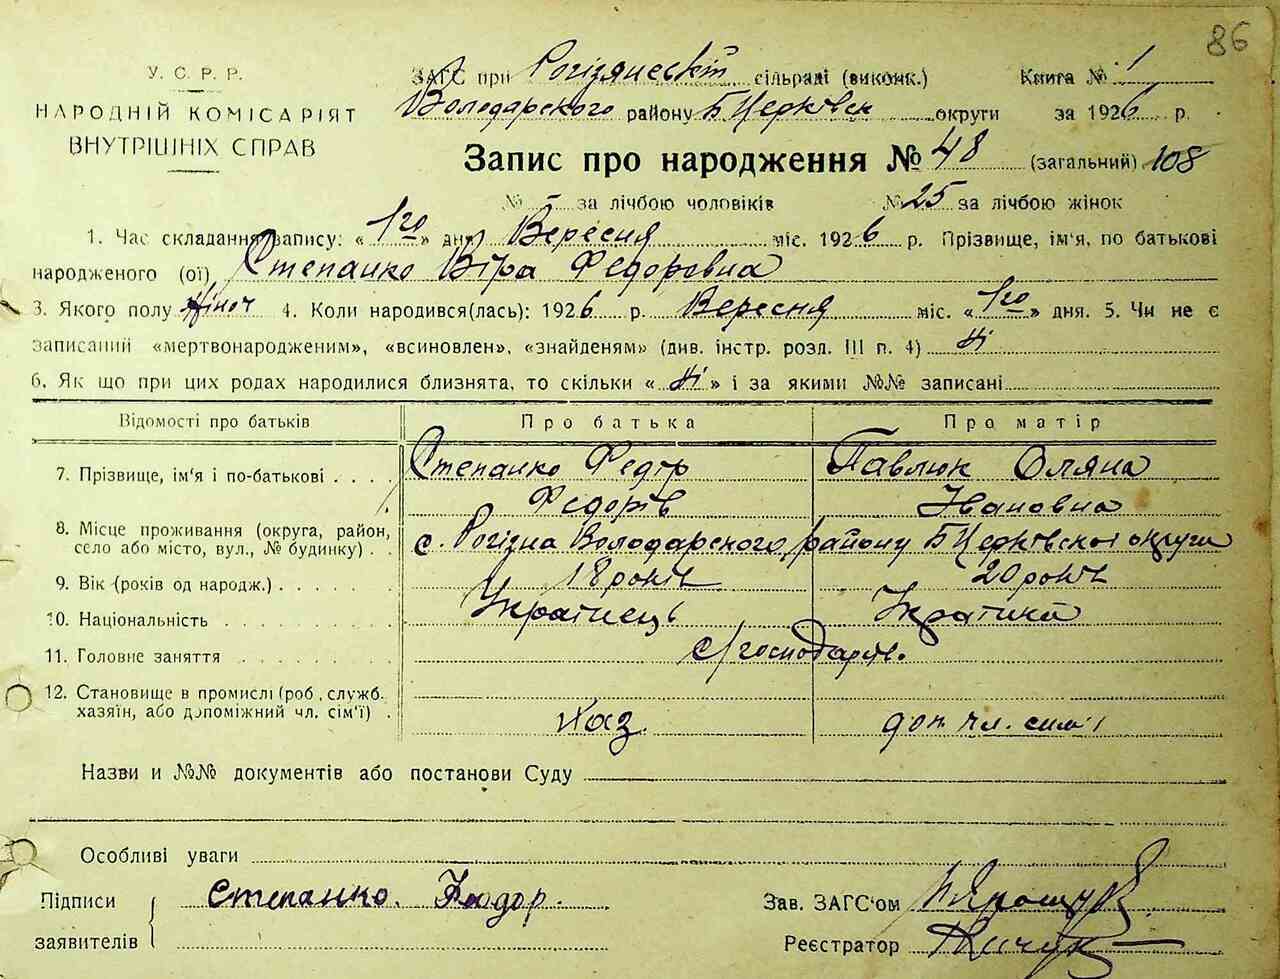 86
У. С. Р. Р.
НАРОДНІЙ КОМІСАРІЯТ
ВНУТРІШНІХ СПРАВ
ЗАГС при Рогізянській сільраді (виконк.) Книга № 1
Володарского району Б Церківск округи за 1926 р.
Запис про народження № 48 (загальний) 108
№ – за лічбою чоловіків № 25 за лічбою жінок
1. Час складання запису: «1го» дня Вересня міс. 1926 р. Прізвище, ім'я, по батькові
народженого (ої) Степанко Віра Федоровна
3. Якого полу жіноч 4. Коли народився(лась): 1926 р. Вересня міс. «1го» дня. 5. Чи не є
записаний «мертвонародженим», «всиновлен», «знайденям» (див. інстр. розд. III п. 4) Ні
6. Як що при цих родах народилися близнята, то скільки « Ні » і за якими №№ записані
Відомості про батьків Про батька Про матір
7. Прізвище, ім'я і по-батькові . . . . Степанко Федір Павлюк Оляна
Федорів Івановна
8. Місце проживання (округа, район,
село або місто, вул., № будинку) . . с. Рогізна Володарского району Б Церківскої округи
9. Вік (років од народж.) . . . . . . . 18 років 20 років
10. Національність . . . . . . . . . . Українець Українка
11. Головне заняття . . . . . . . . . с/господарів.
12. Становище в промислі (роб., служб.
хазяїн, або допоміжний чл. сім'ї) . Хаз. доп. чл. сим'ї
Назви и №№ документів або постанови Суду
Особливі уваги
Підписи Степанко. Теодор. Зав. ЗАГС'ом
заявителів Реєстратор